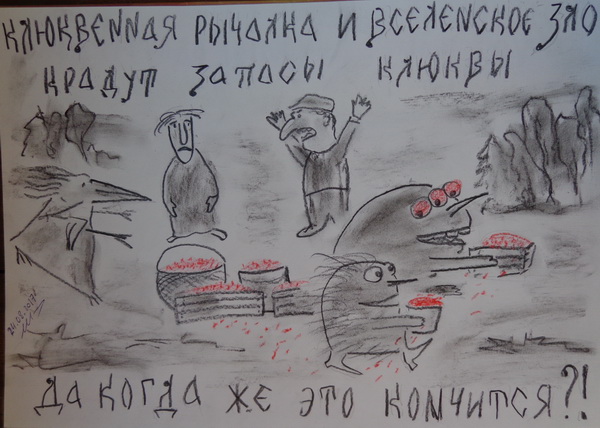 КЛЮКВЕННАЯ РЫЧАЛКА И ВСЕЛЕНСКОЕ ЗЛО
КРАДУТ ЗАПАСЫ КЛЮКВЫ
ДА КОГДА ЖЕ ЭТО КОНЧИТСЯ?!